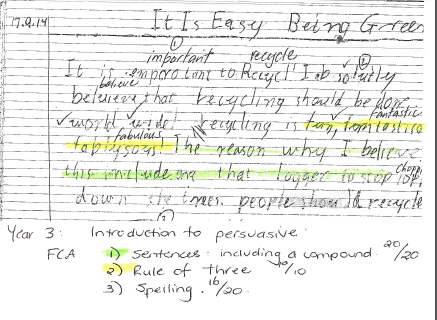 17.9.14 It Is Easy Being Green
① important recycle ②
It is emporotant to Recycl I absolutly
believe
beleieve that recycling should be done
fantastic
world wide recycling is
fabulous
The reason why I believe
chopping
this include that logger to stop
down the trees. people should recycle
Year 3: Introduction to persuasive
FCA 1) Sentences: including a compound. 20/20
2) Rule of three 10/10
3) Spelling. 16/20